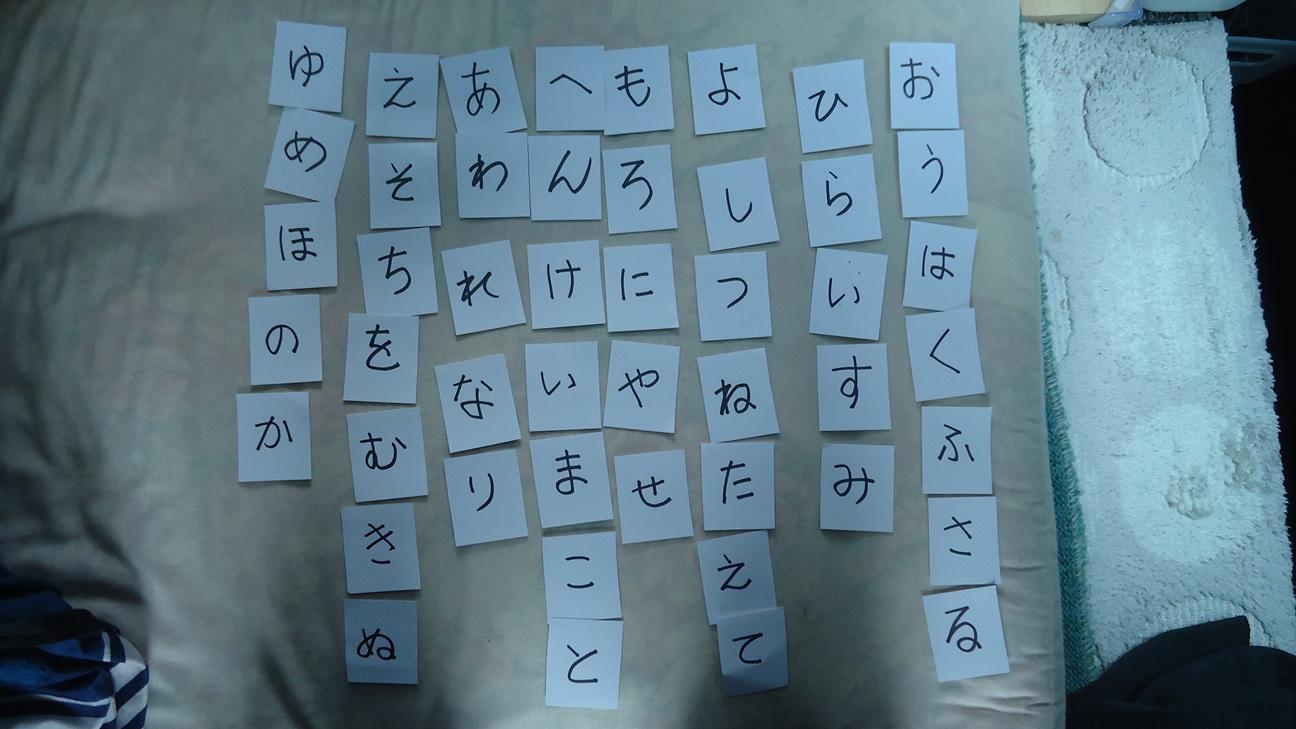 おうはくふさる
ひらいすみ
よしつねたえて
もろにやせ
へんけいまこと
あわれなり
えそちをむきぬ
ゆめほのか